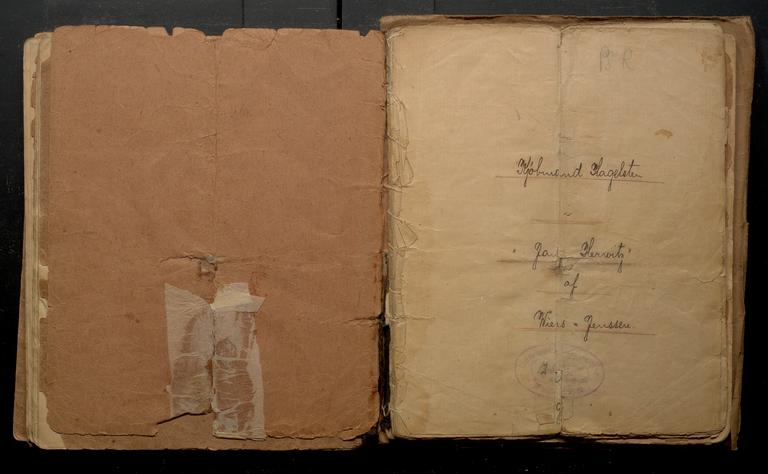 B R
Kjøbmand Hagelsten
"Jan Herwitz"
af
Wiers-Jenssen.